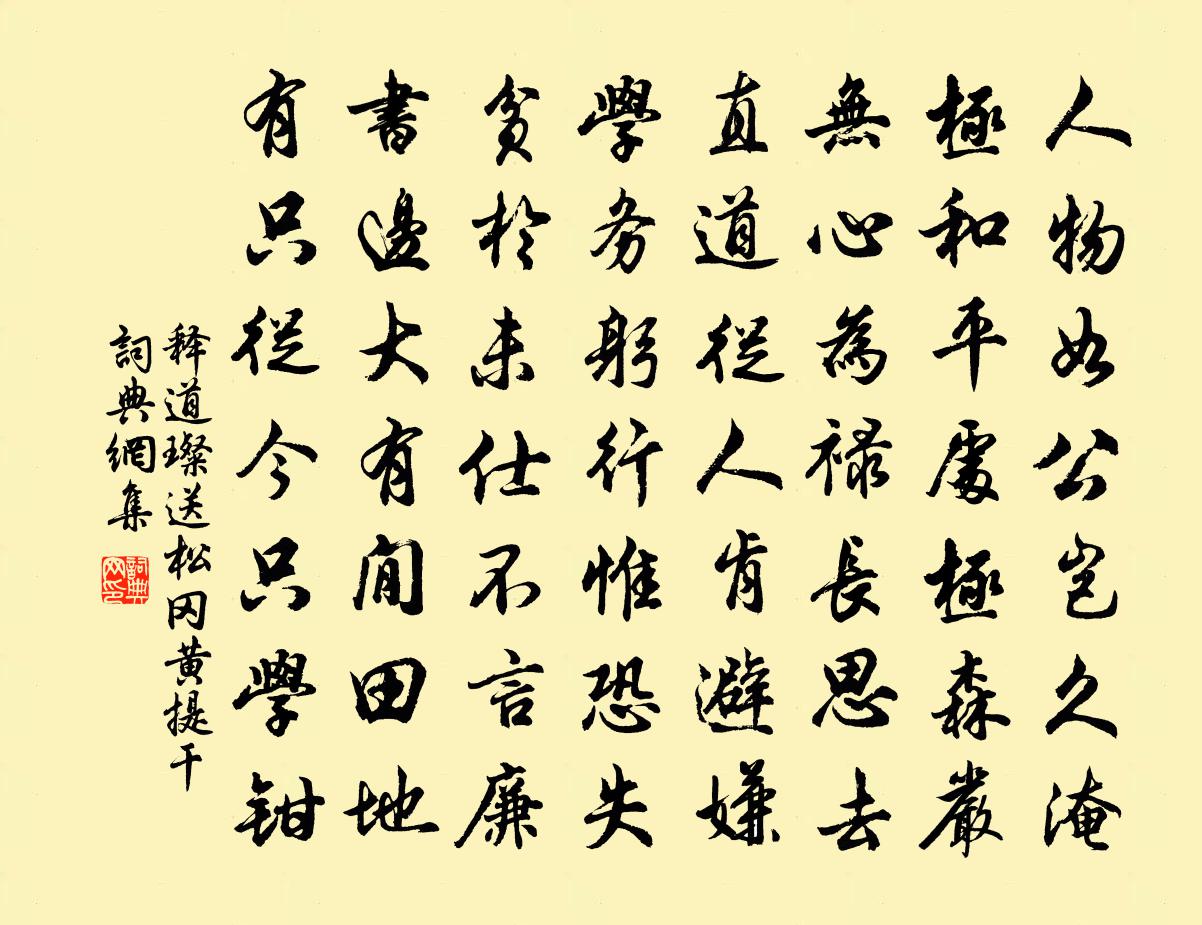 人物如公豈久淹
極和平處極森嚴
無心為祿長思去
直道從人肯避嫌
學务躬行惟恐失
貧於未仕不言廉
書邊大有閒田地
有只從今只學鉗
释道璨送松冈黄提干
詞典網集
詞典網印